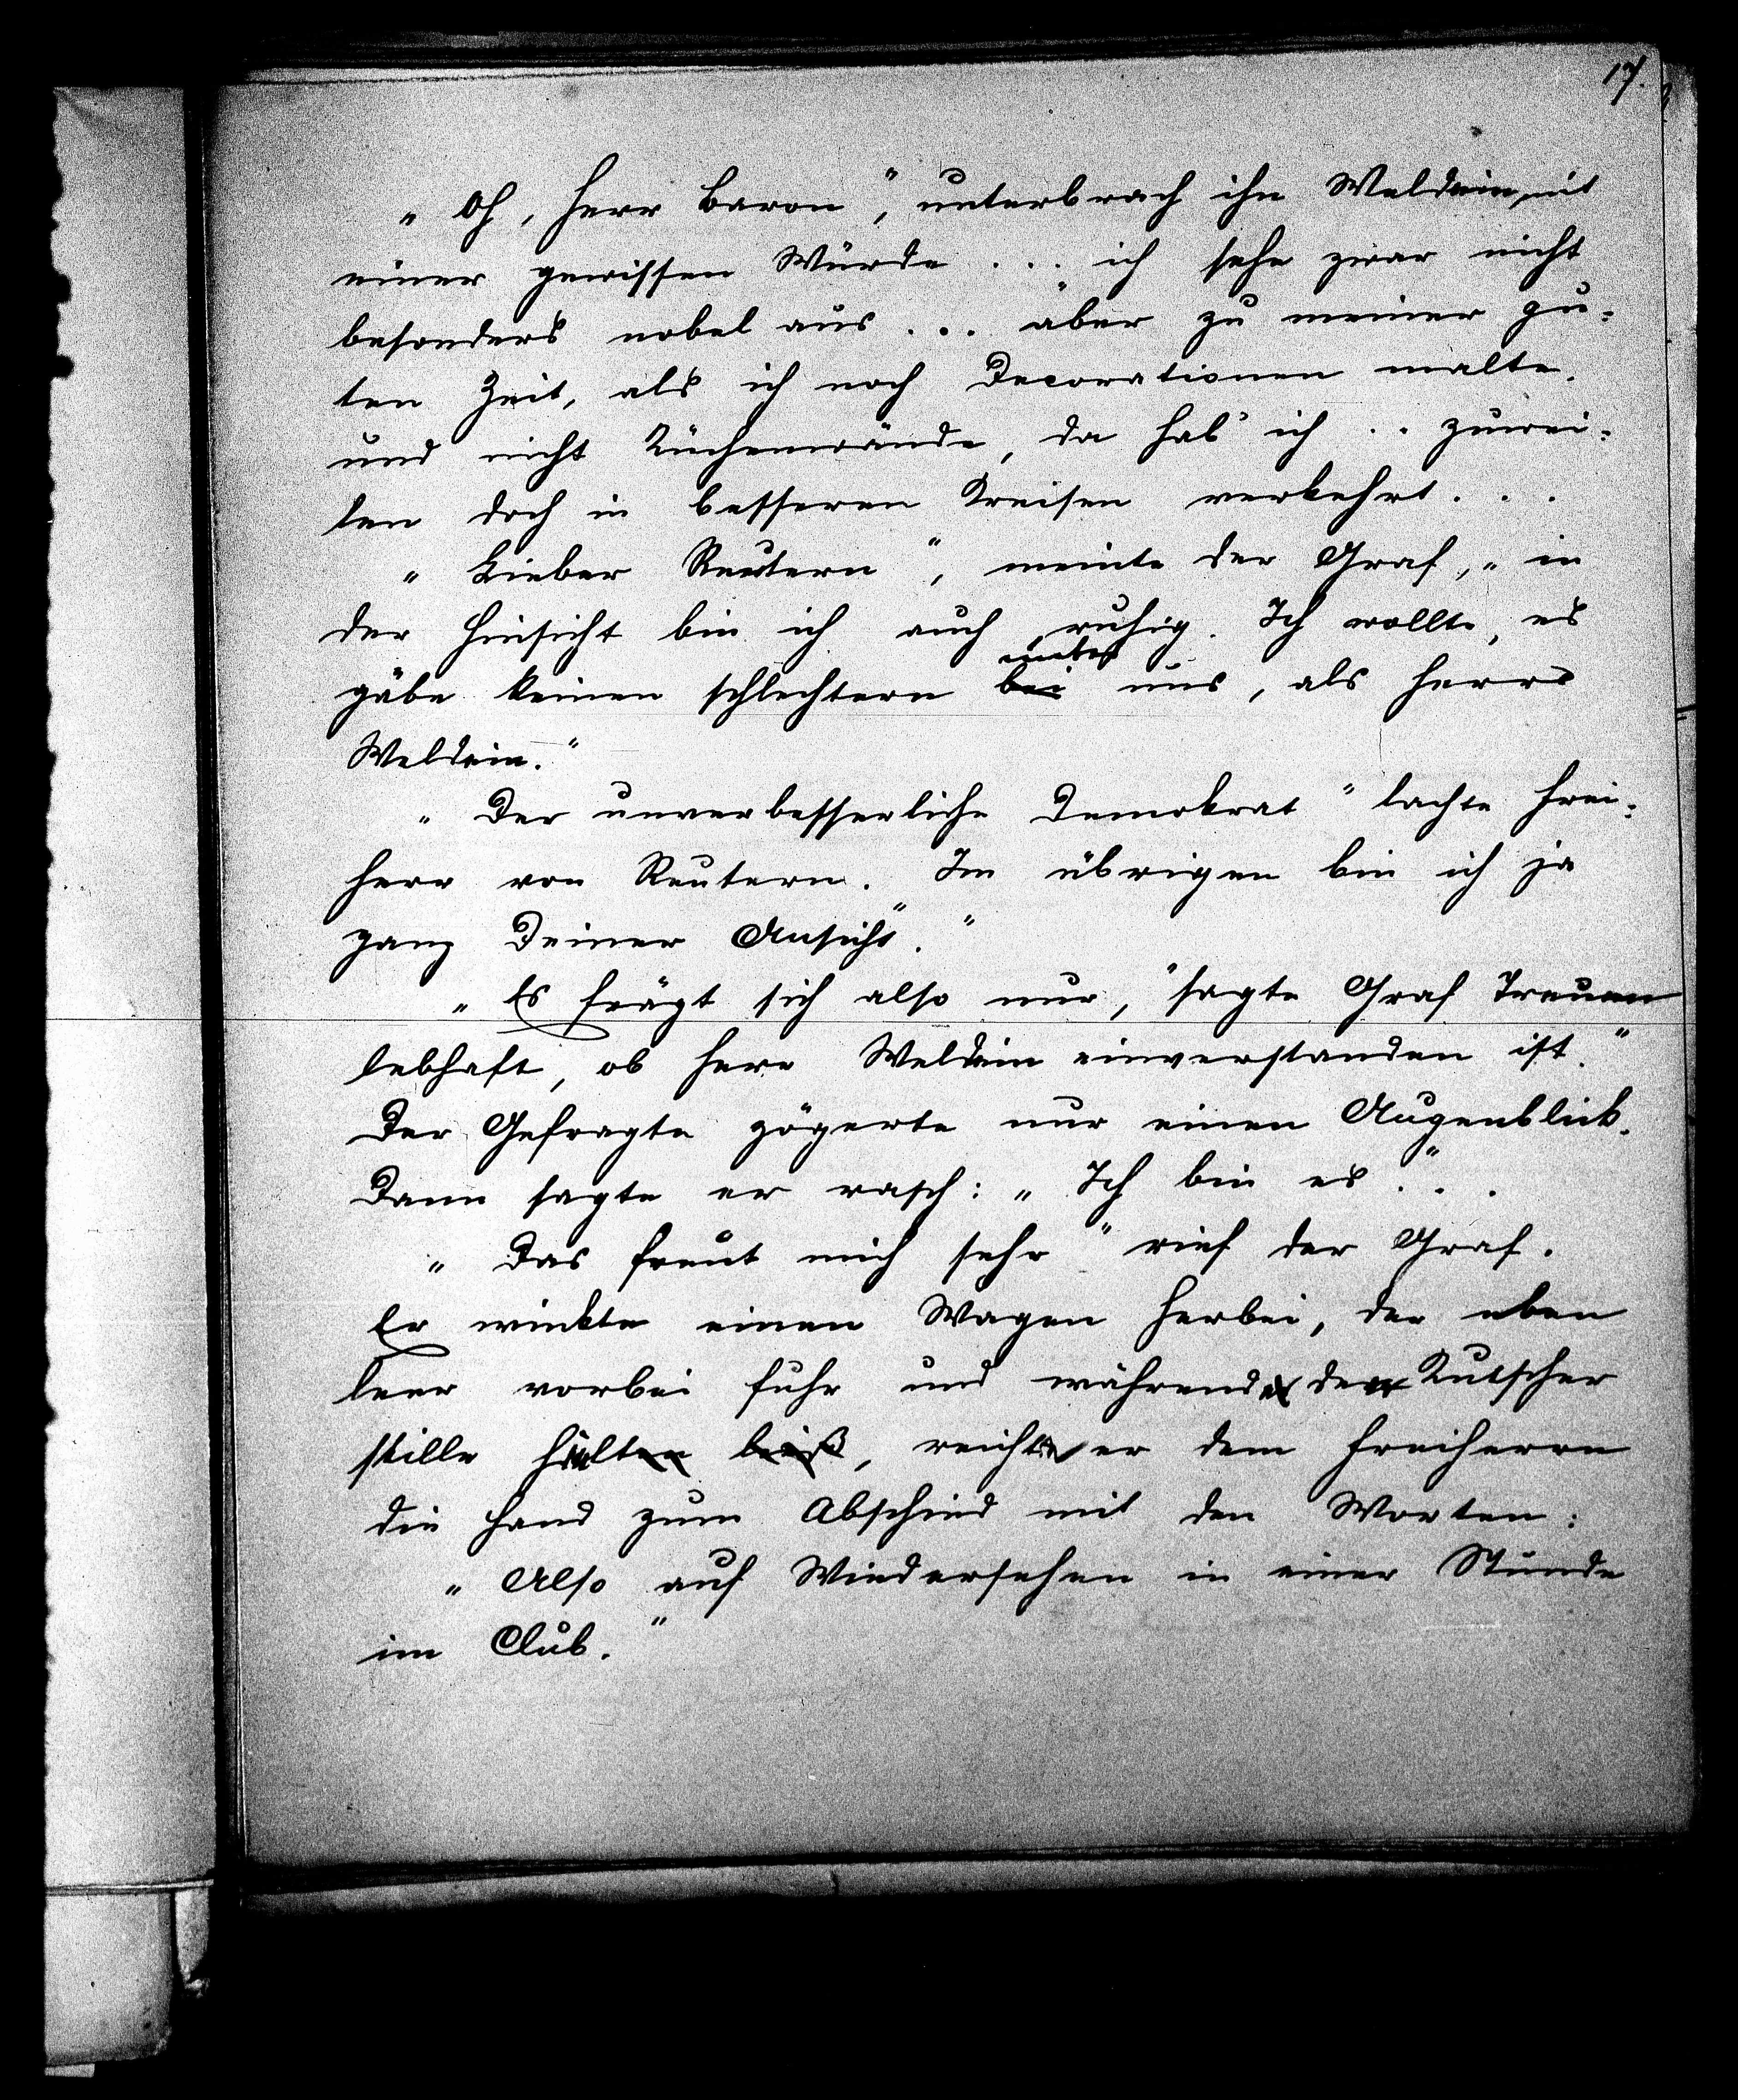 17.
„Oh, Herr Baron", unterbrach ihn Weldein mit
einer gewissen Würde ... „ich sehe zwar nicht
besonders nobel aus ... aber zu meiner gu-
ten Zeit, als ich noch Decorationen malte.
und nicht Küchenwände, da hab' ich .. zuwei-
len doch in besseren Kreisen verkehrt...
„Lieber Reutern", meinte der Graf, „in
der Hinsicht bin ich auch ruhig. Ich wollte, es
unter
gäbe keinen schlechtern bei uns, als Herrn
Weldein."
„Der unverbesserliche Demokrat" lachte Frei-
herr von Reutern. „Im übrigen bin ich ja
ganz Deiner Ansicht."
„Es frägt sich also nur," sagte Graf Treuen
lebhaft, ob Herr Weldein einverstanden ist."
Der Gefragte zögerte nur einen Augenblick.
Dann sagte er rasch: „Ich bin es"...
„Das freut mich sehr" rief der Graf.
Er winkte einen Wagen herbei, der eben
leer vorbei fuhr und während der Kutscher
stille hielt ließ, reichte er dem Freiherrn
die Hand zum Abschied mit den Worten:
„Also auf Wiedersehen in einer Stunde
im Club."